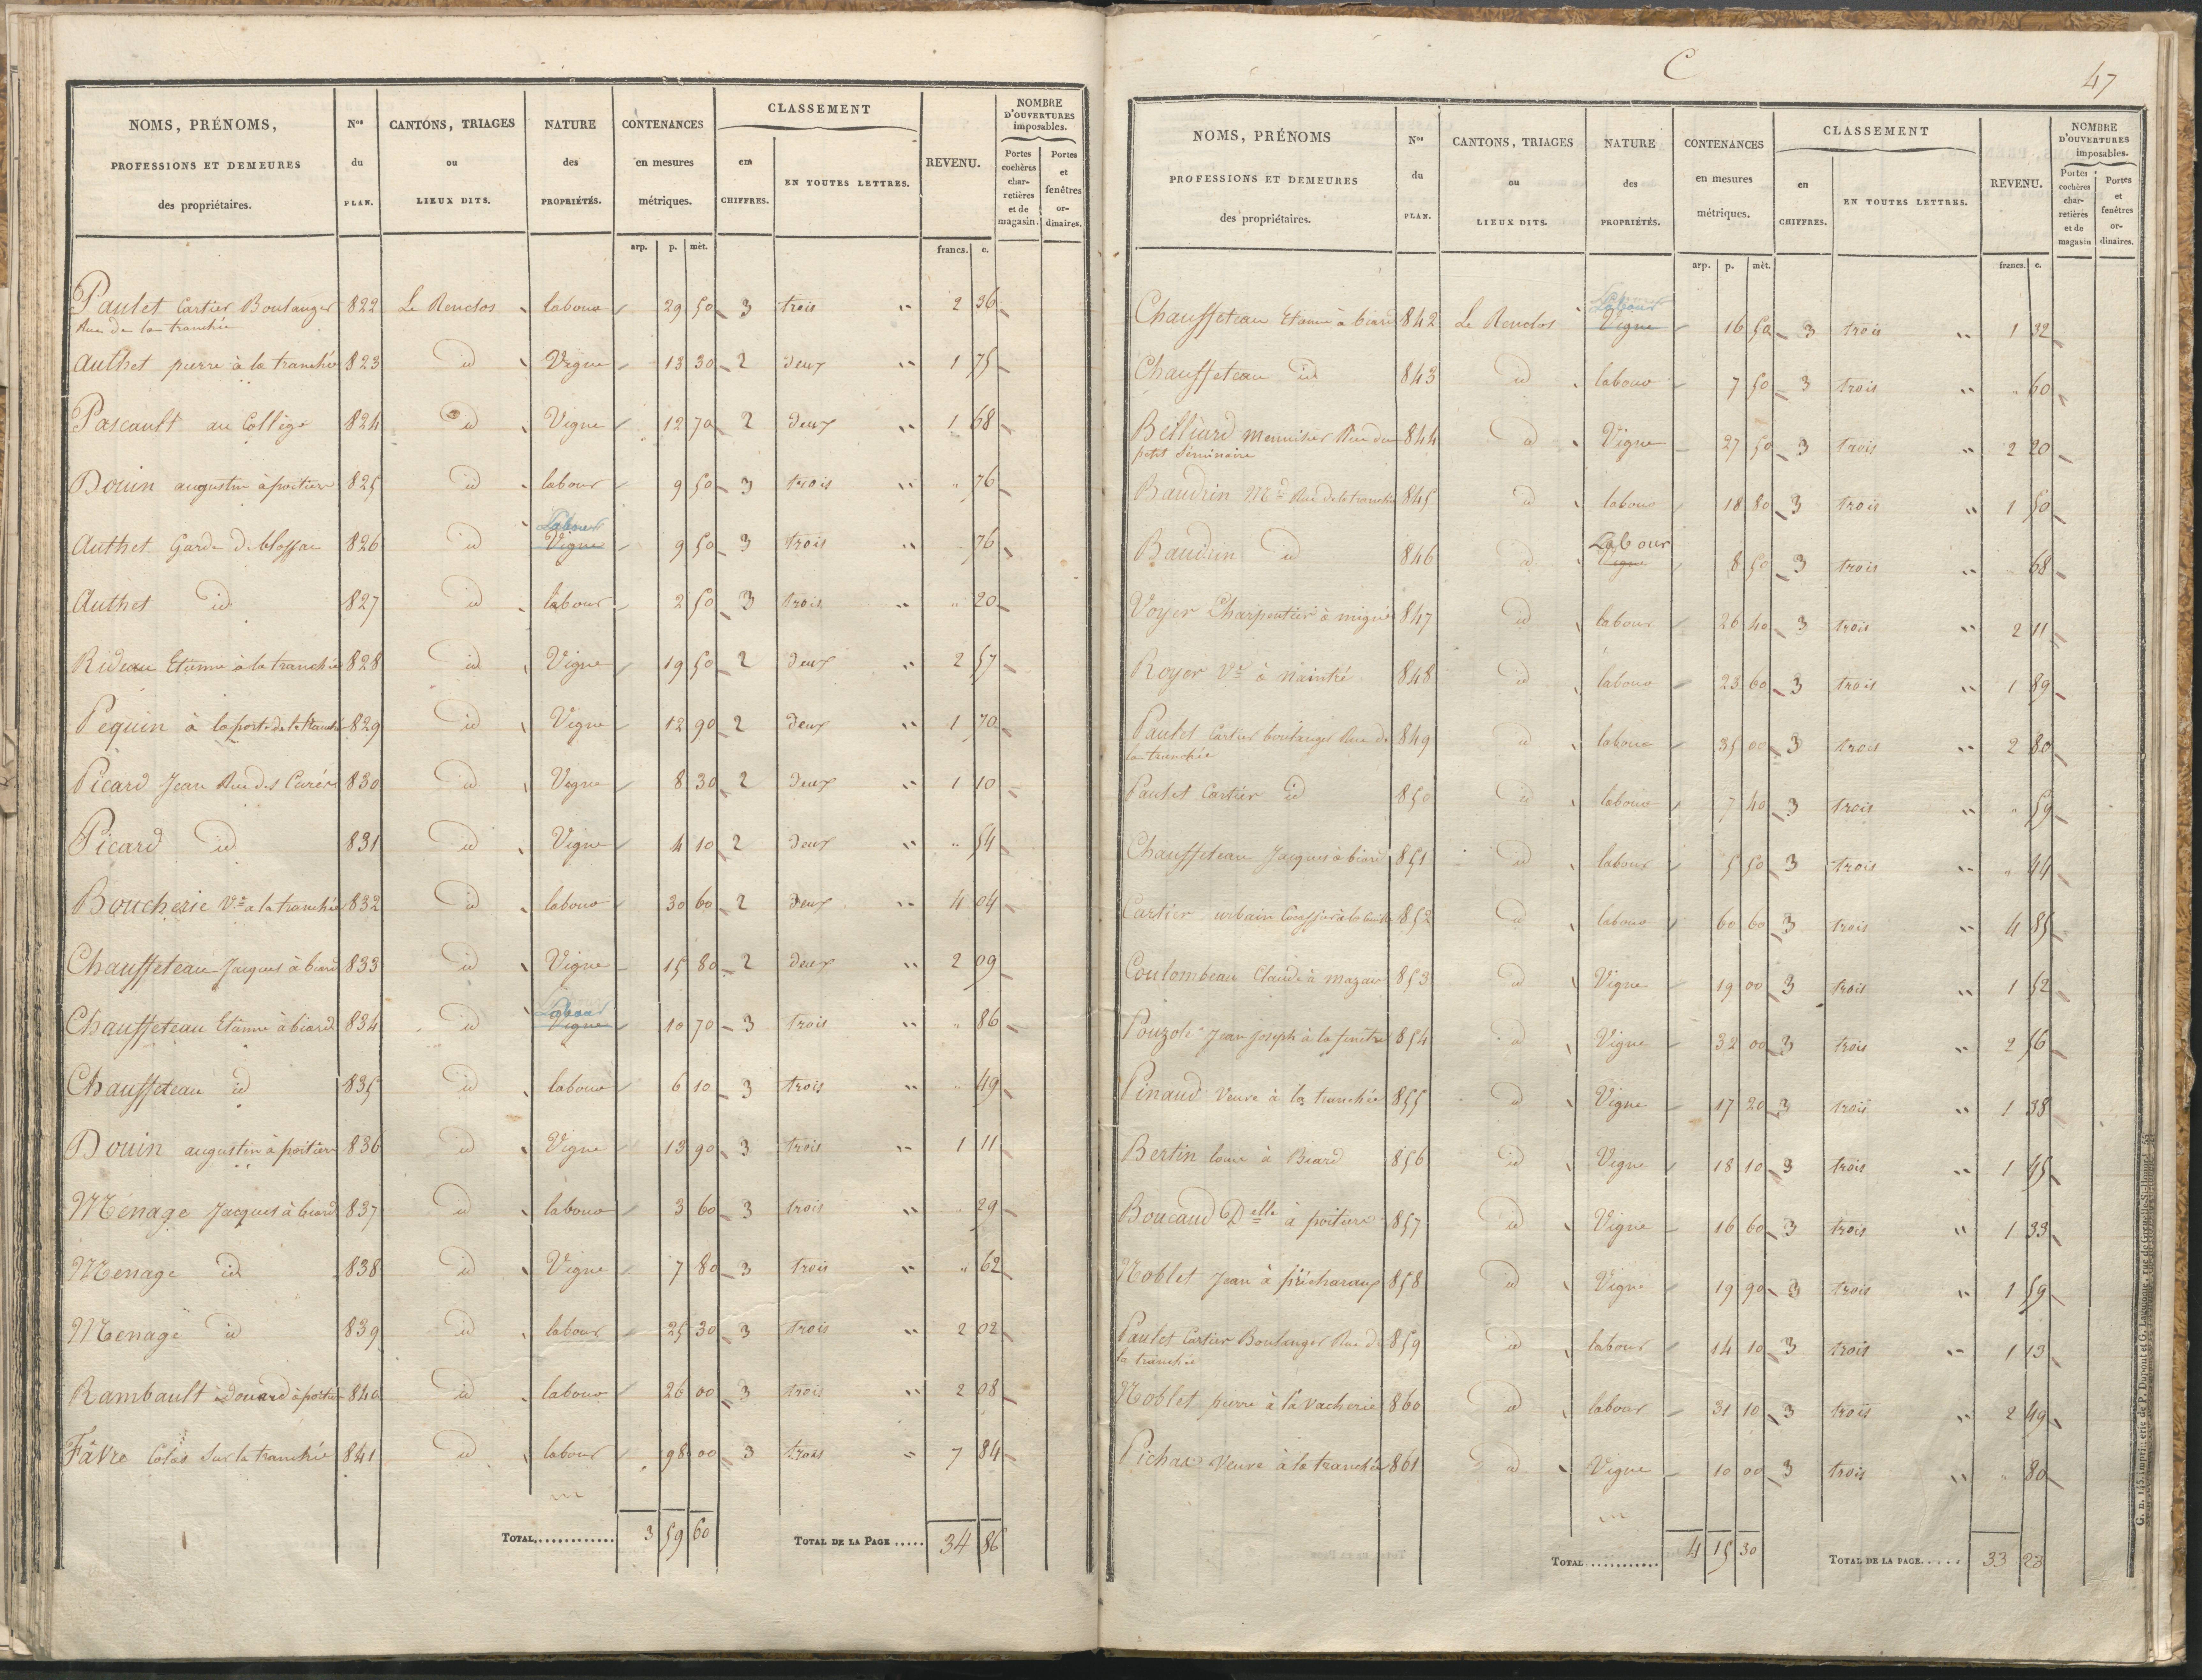 NOMS, PRÉNOMS, PROFESSIONS ET DEMEURES des propriétaires. | Nos du PLAN. | CANTONS, TRIAGES ou LIEUX DITS. | NATURE des PROPRIÉTÉS. | CONTENANCES en mesures métriques. | CLASSEMENT en CHIFFRES. | EN TOUTES LETTRES. | REVENU. | NOMBRE D'OUVERTURES imposables. Portes cochères charretières et de magasin. | Portes et fenêtres ordinaires.
arp. p. mèt. francs. c.
Paulet Cartier Boulanger 822 Le Renclos labour 29 50 3 trois 2 36
Rue de la tranchée
Authet pierre à la tranchée 823 id Vigne 13 30 2 deux 1 75
Pascault au Collège 824 id Vigne 12 70 2 deux 1 68
Douin augustin à poitiers 825 id labour 9 50 3 trois " 76
Labour
Authet Garde de blossac 826 id Vigne 9 50 3 trois 76
Authet id 827 id labour 2 50 3 trois " 20
Rideau Etienne à la tranchée 828 id Vigne 19 50 2 deux 2 57
Pequin à la porte de la tranchée 829 id Vigne 12 90 2 deux 1 70
Picard Jean Rue des Curés 830 id Vigne 8 30 2 deux 1 10
Picard id 831 id Vigne 4 10 2 deux " 54
Boucherie Ve a la tranchée 832 id labour 30 60 2 deux 4 04
Chauffeteau Jacques à biard 833 id Vigne 15 80 2 deux 2 09
Labour
Chauffeteau Etienne à biard 834 id Vigne 10 70 3 trois " 86
Chauffeteau id 835 id labour 6 10 3 trois " 49
Douin augustin à poitiers 836 id Vigne 13 90 3 trois 1 11
Ménage Jacques à biard 837 id labour 3 60 3 trois 29
Menage id 838 id Vigne 7 80 3 trois " 62
Menage id 839 id labour 25 30 3 trois 2 02
Rambault édouard à poitiers 840 id labour 26 00 3 trois 2 08
Fâvre Colas Sur la tranchée 841 id labour 98 00 3 trois 7 84
TOTAL............ 3 59 60 TOTAL DE LA PAGE ..... 34 86
C
47
NOMS, PRÉNOMS PROFESSIONS ET DEMEURES des propriétaires. | Nos du PLAN. | CANTONS, TRIAGES ou LIEUX DITS. | NATURE des PROPRIÉTÉS. | CONTENANCES en mesures métriques. | CLASSEMENT en CHIFFRES. | EN TOUTES LETTRES. | REVENU. | NOMBRE D'OUVERTURES imposables. Portes cochères charretières et de magasin | Portes et fenêtres ordinaires.
arp. p. mèt. francs. c.
Labour
Chauffeteau Etienne à biard 842 Le Renclos Vigne 16 50 3 trois 1 32
Chauffeteau id 843 id labour 7 50 3 trois " 60
Belliard Menuisier Rue du 844 id Vigne 27 50 3 trois 2 20
petit Séminaire
Baudrin Md Rue de la tranchée 845 id labour 18 80 3 trois 1 50
Labour
Baudrin id 846 id Vigne 8 50 3 trois 68
Voyer Charpentier à migné 847 id labour 26 40 3 trois 2 11
Royer Ve à naintré 848 id labour 23 60 3 trois 1 89
Paulet Cartier boulanger Rue de 849 id labour 35 00 3 trois 2 80
la tranchée
Paulet Cartier id 850 id labour 7 40 3 trois " 59
Chauffeteau Jacques à biard 851 id labour 5 50 3 trois " 44
Cartier urbain 852 id labour 60 60 3 trois 4 85
Coulombeau Claude à mazais 853 id Vigne 19 00 3 trois 1 52
Pouzole Jean Joseph à la fenêtre 854 id Vigne 32 00 3 trois 2 56
Pinaud Veuve à la tranchée 855 id Vigne 17 20 3 trois 1 38
Bertin louis à Biard 856 id Vigne 18 10 3 trois 1 45
Boucaud Delle à poitiers 857 id Vigne 16 60 3 trois 1 33
Noblet Jean à précharaux 858 id Vigne 19 90 3 trois 1 59
Paulet Cartier Boulanger Rue de 859 id labour 14 10 3 trois 1 13
la tranchée
Noblet pierre à la Vacherie 860 id labour 31 10 3 trois 2 49
Veuve à la tranchée 861 id Vigne 10 00 3 trois " 80
TOTAL............ 4 15 30 TOTAL DE LA PAGE..... 33 23